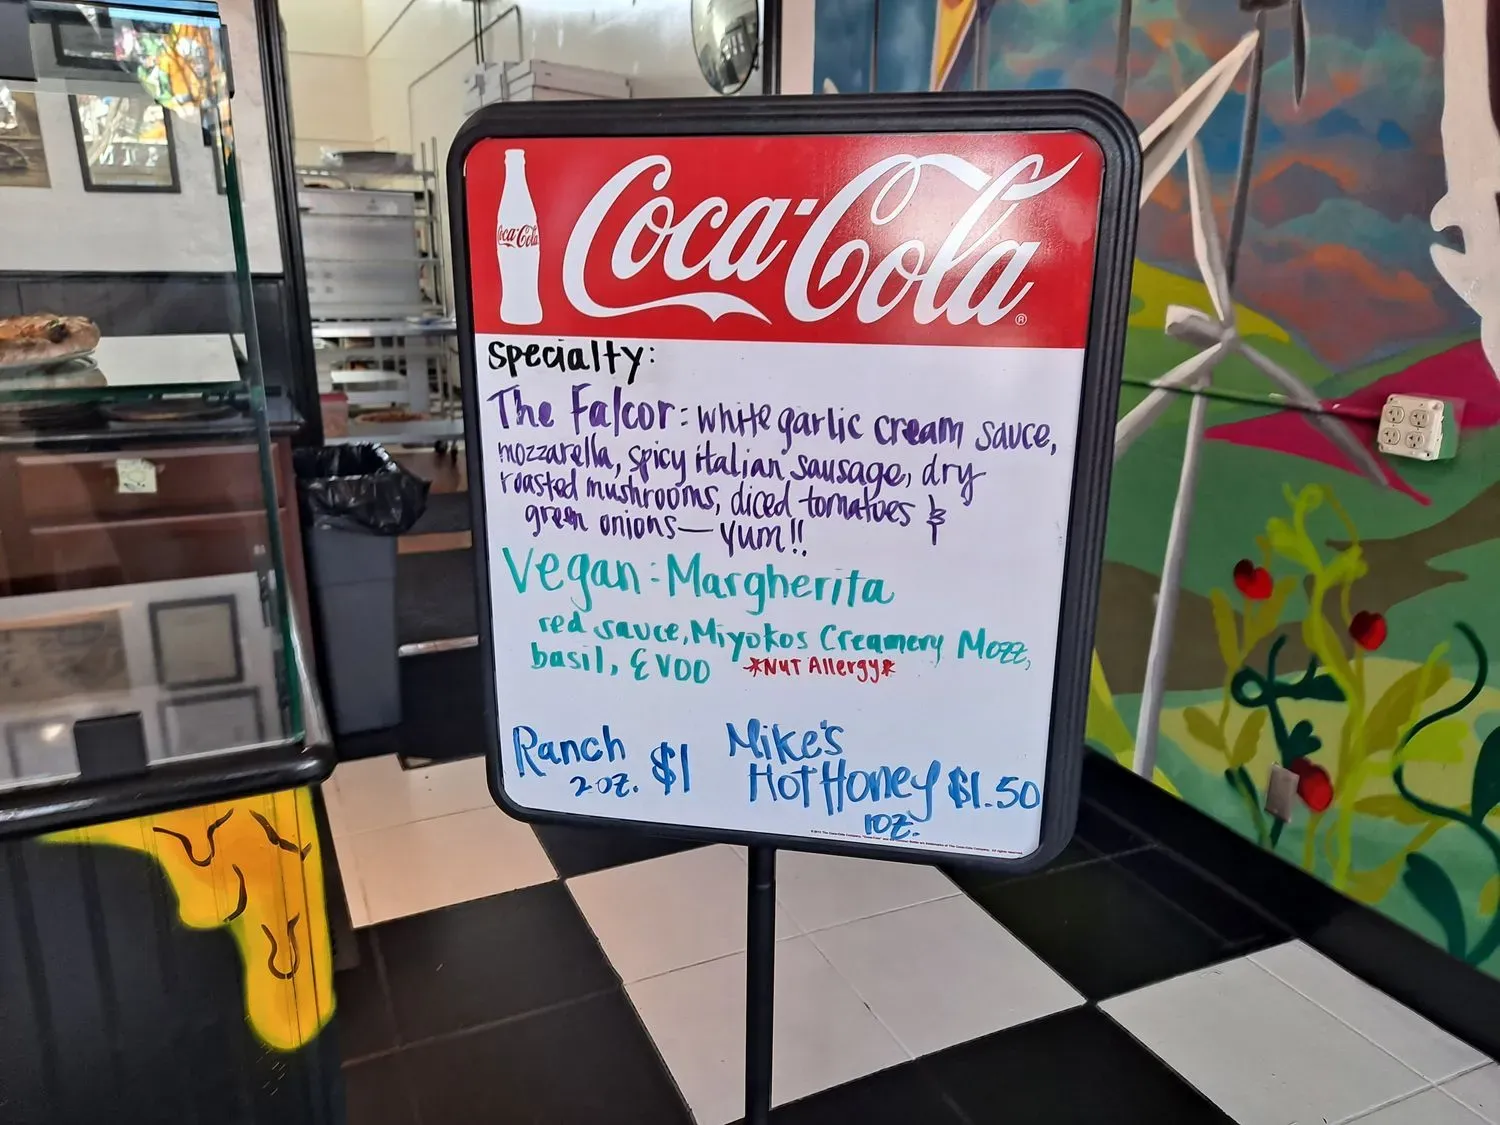 Coca-Cola
Coca-Cola®
Specialty:
The Falcor: white garlic cream sauce,
mozzarella, spicy italian sausage, dry
roasted mushrooms, diced tomatoes &
green onions—yum!!
Vegan: Margherita
red sauce, Miyokos Creamery Mozz,
basil, EVOO *Nut Allergy*
Ranch $1
2oz.
Mike's
Hot Honey $1.50
1oz.